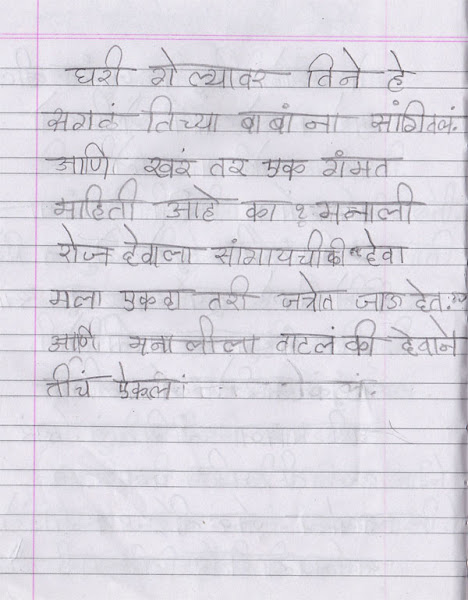 घरी गेल्यावर तिने हे
सगळं तिच्या बाबांना सांगितलं.
आणि खरं तर एक गंमत
माहिती आहे का ? मनाली
रोज देवाला सांगायची की "देवा
मला एकदा तरी जत्रेत जाऊ देत."
आणि मनालीला वाटलं की देवाने
तीचं ऐकलं.